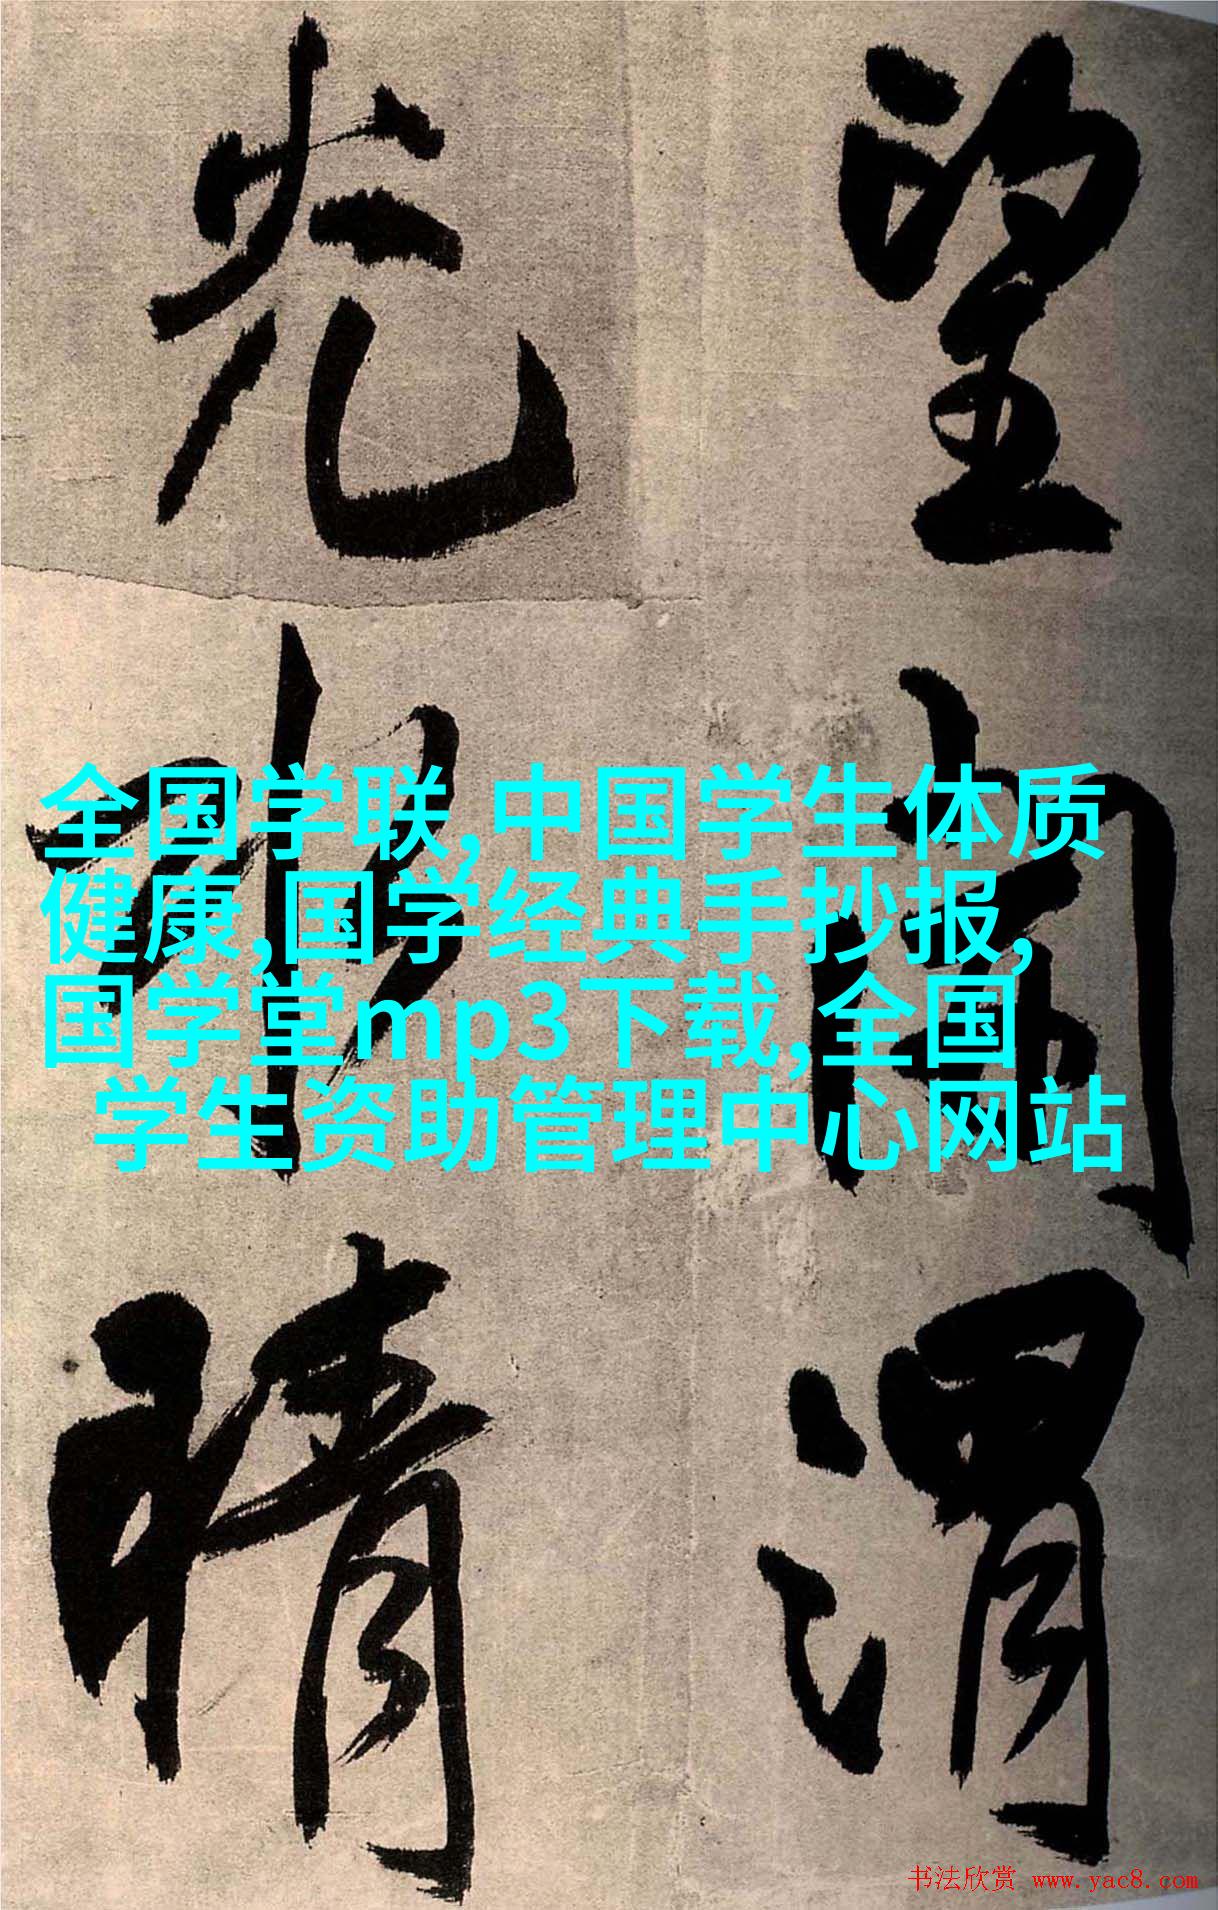 望 渭
光 晴
全国学联,中国学生体质
健康,国学经典手抄报,
国学堂mp3下载,全国
学生资助管理中心网站
书法欣赏 www.yac8.com